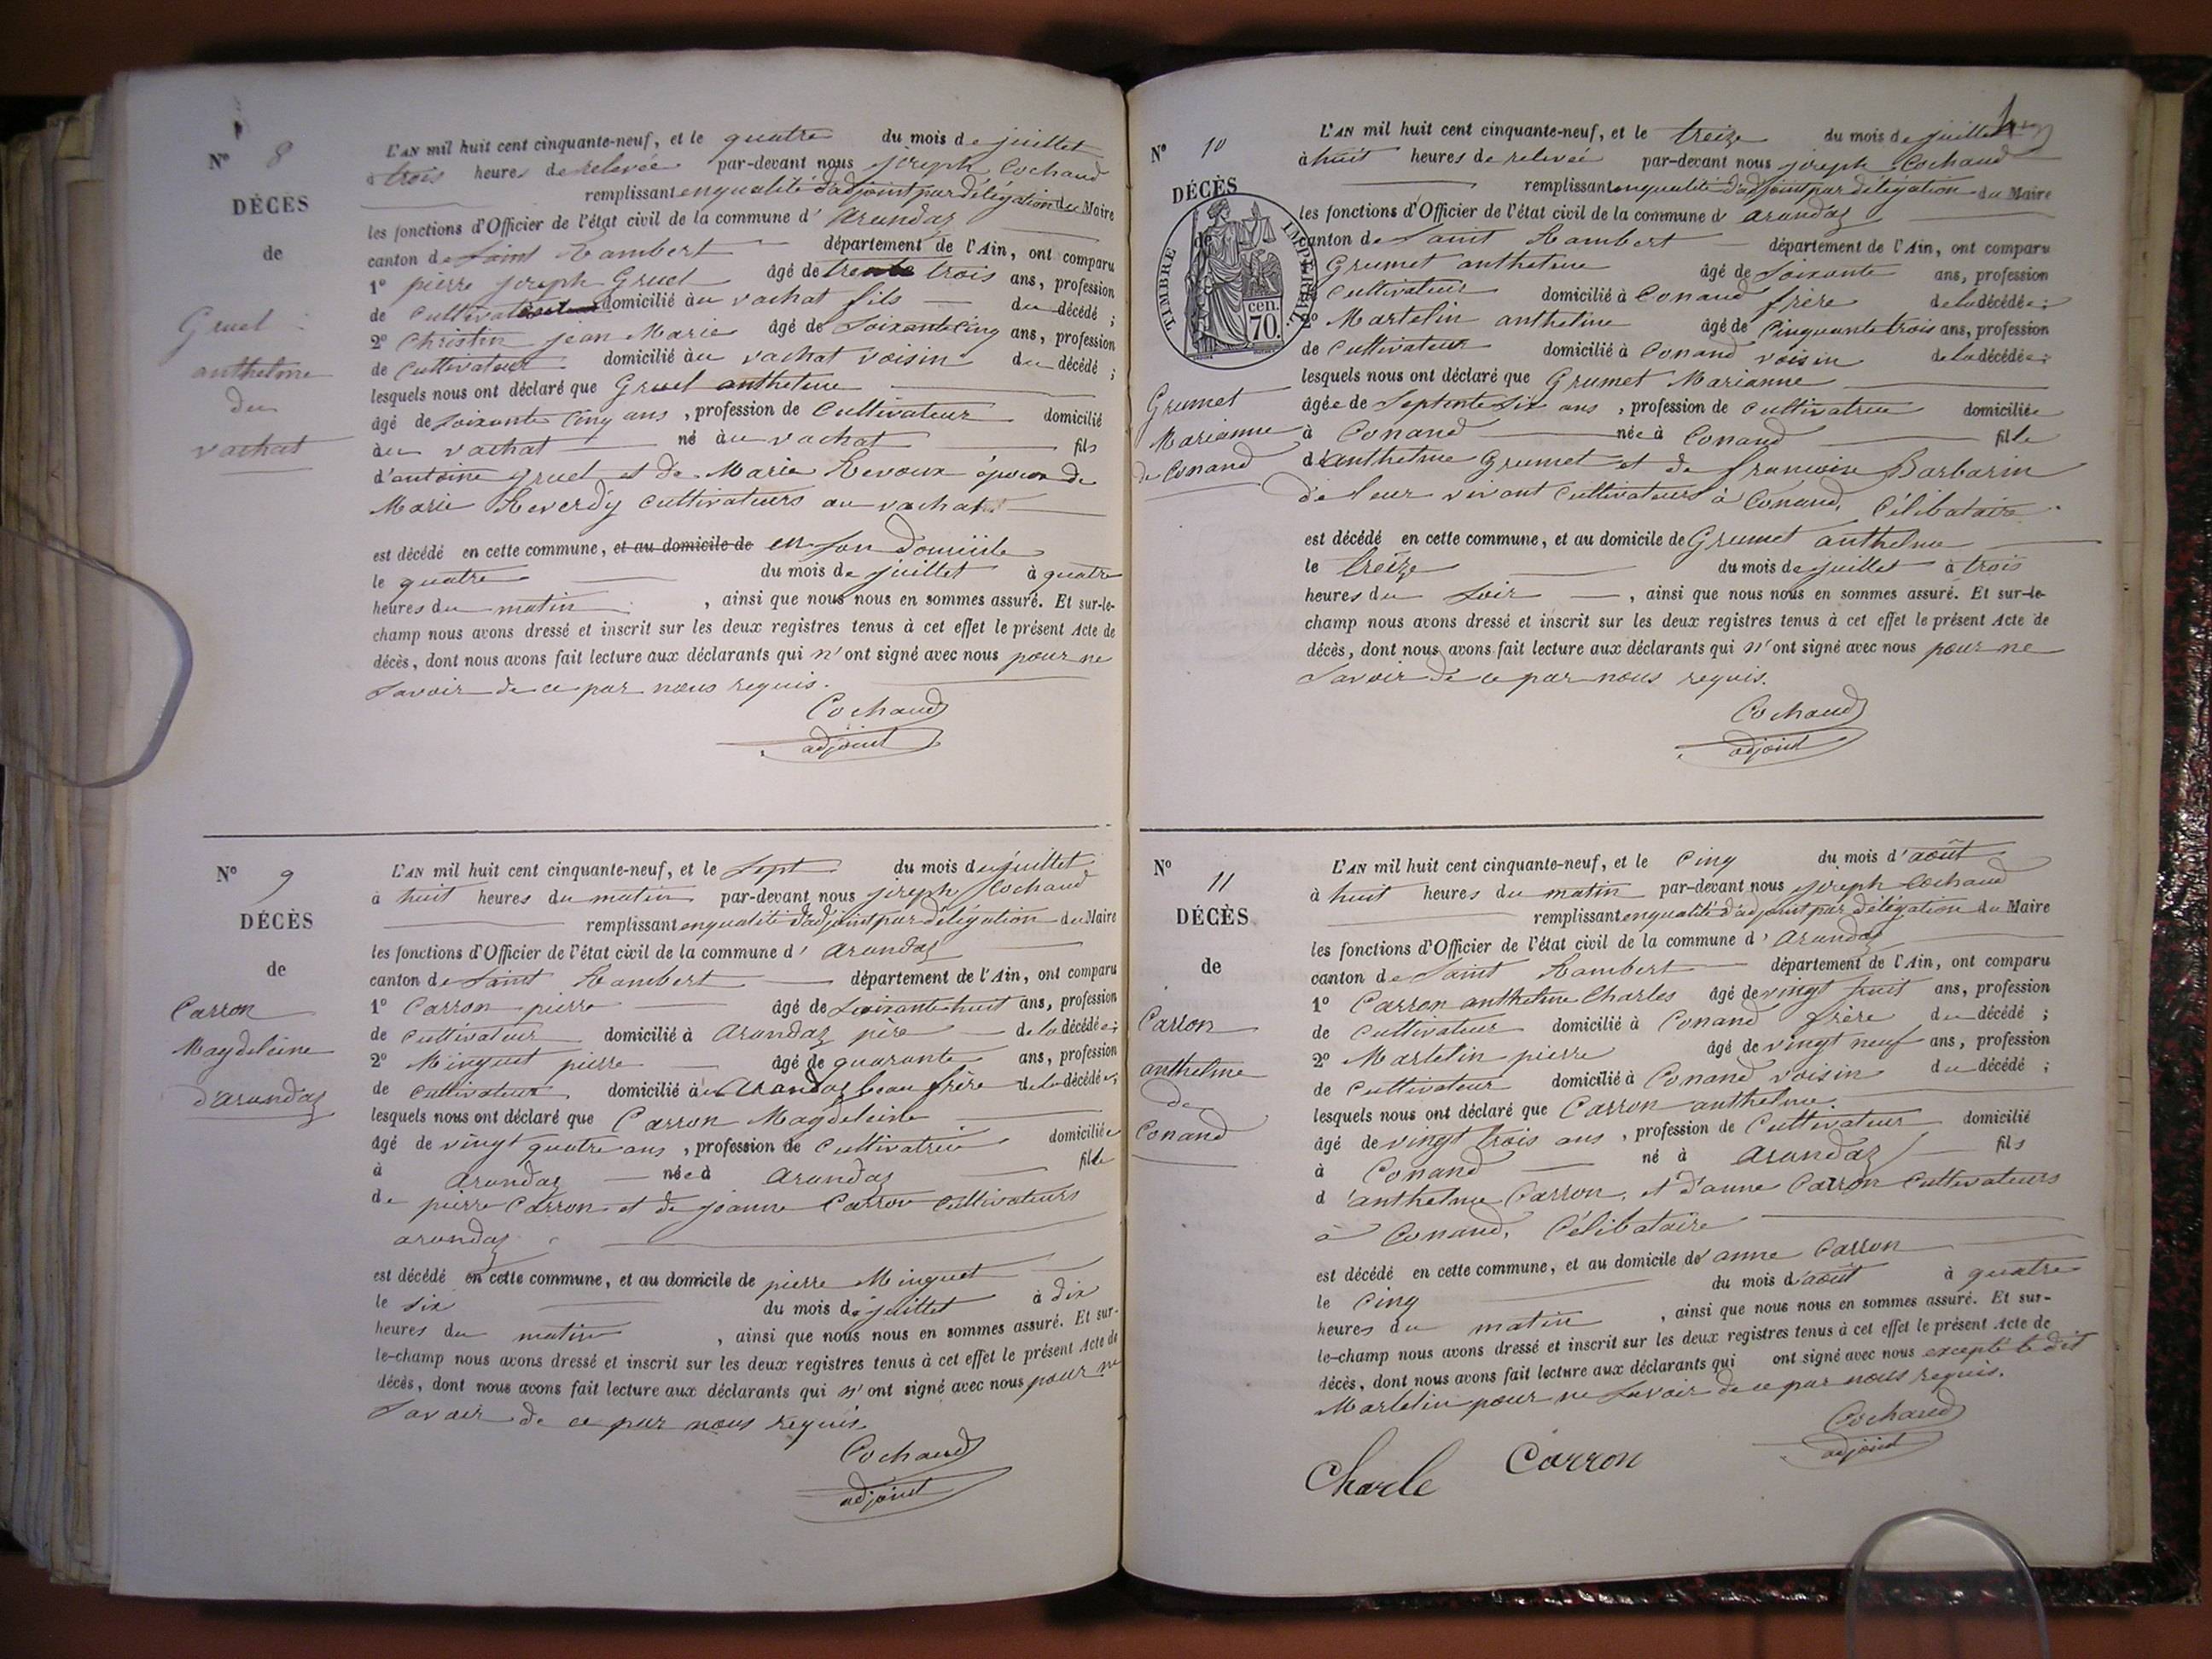 N° 8
DÉCÈS
de
Gruel
anthelme
du
vachat
L'AN mil huit cent cinquante-neuf, et le quatre du mois de juillet
à trois heures de relevée par-devant nous joseph Cochaud
remplissant en qualité d'adjoint par délégation du Maire
les fonctions d'Officier de l'état civil de la commune d' arandaz
canton de Saint Rambert département de l'Ain, ont comparu
1° pierre joseph Gruel âgé de trente trois ans, profession
de Cultivateur domicilié au vachat fils du décédé ;
2° Christin jean Marie âgé de Soixante cinq ans, profession
de Cultivateur domicilié au vachat voisin du décédé ;
lesquels nous ont déclaré que Gruel anthelme
âgé de Soixante Cinq ans , profession de Cultivateur domicilié
au vachat né au vachat fils
d'antoine gruel et de Marie Revoux époux de
Marie Reverdy cultivateurs au vachat
est décédé en cette commune, et au domicile de en Son Domicile
le quatre du mois de juillet à quatre
heures du matin , ainsi que nous nous en sommes assuré. Et sur-le-
champ nous avons dressé et inscrit sur les deux registres tenus à cet effet le présent Acte de
décès, dont nous avons fait lecture aux déclarants qui n'ont signé avec nous pour ne
Savoir de ce par nous requis.
Cochaud
adjoint
N° 9
DÉCÈS
de
Carron
Magdeleine
d'arandaz
L'AN mil huit cent cinquante-neuf, et le Sept du mois de juillet
à huit heures du matin par-devant nous joseph Cochaud
remplissant en qualité d'adjoint par délégation du Maire
les fonctions d'Officier de l'état civil de la commune d' arandaz
canton de Saint Rambert département de l'Ain, ont comparu
1° Carron pierre âgé de Soixante huit ans, profession
de cultivateur domicilié à arandaz père de la décédée ;
2° Minguet pierre âgé de quarante ans, profession
de cultivateur domicilié à arandaz beau frère de la décédée ;
lesquels nous ont déclaré que Carron Magdeleine
âgé de vingt quatre ans , profession de Cultivatrice domiciliée
à arandaz née à arandaz fille
de pierre Carron et de jeanne Carron cultivateurs
arandaz
est décédé en cette commune, et au domicile de pierre Minguet
le six du mois de juillet à dix
heures du matin , ainsi que nous nous en sommes assuré. Et sur-
le-champ nous avons dressé et inscrit sur les deux registres tenus à cet effet le présent Acte de
décès, dont nous avons fait lecture aux déclarants qui n'ont signé avec nous pour ne
Savoir de ce par nous requis
Cochaud
adjoint
N° 10
DÉCÈS
de
TIMBRE IMPÉRIAL
70 cen.
Grumet
Marianne
de Conand
L'AN mil huit cent cinquante-neuf, et le treize du mois de juillet
à huit heures de relevée par-devant nous joseph Cochaud
remplissant en qualité d'adjoint par délégation du Maire
les fonctions d'Officier de l'état civil de la commune d' arandaz
canton de Saint Rambert département de l'Ain, ont comparu
1° Grumet anthelme âgé de Soixante ans, profession
de Cultivateur domicilié à Conand frère de la décédée ;
2° Martelin anthelme âgé de Cinquante trois ans, profession
de Cultivateur domicilié à Conand voisin de la décédée ;
lesquels nous ont déclaré que Grumet Marianne
âgée de Septente Six ans , profession de cultivatrice domiciliée
à Conand née à Conand fille
d'anthelme Grumet et de francoise Barbarin
de leur vivant Cultivateurs à Conand, Célibataire
est décédé en cette commune, et au domicile de Grumet anthelme
le treize du mois de juillet à trois
heures du Soir , ainsi que nous nous en sommes assuré. Et sur-le-
champ nous avons dressé et inscrit sur les deux registres tenus à cet effet le présent Acte de
décès, dont nous avons fait lecture aux déclarants qui n'ont signé avec nous pour ne
Savoir de ce par nous requis.
Cochaud
adjoint
N° 11
DÉCÈS
de
Carron
anthelme
de
Conand
L'AN mil huit cent cinquante-neuf, et le Cinq du mois d'août
à huit heures du matin par-devant nous joseph Cochaud
remplissant en qualité d'adjoint par délégation du Maire
les fonctions d'Officier de l'état civil de la commune d' arandaz
canton de Saint Rambert département de l'Ain, ont comparu
1° Carron anthelme Charles âgé de vingt huit ans, profession
de Cultivateur domicilié à Conand frère du décédé ;
2° Martelin pierre âgé de vingt neuf ans, profession
de Cultivateur domicilié à Conand voisin du décédé ;
lesquels nous ont déclaré que Carron anthelme
âgé de vingt trois ans , profession de Cultivateur domicilié
à Conand né à arandaz fils
d'anthelme Carron, et d'anne Carron Cultivateurs
à Conand, Célibataire
est décédé en cette commune, et au domicile de anne Carron
le Cinq du mois d'août à quatre
heures du matin , ainsi que nous nous en sommes assuré. Et sur-
le-champ nous avons dressé et inscrit sur les deux registres tenus à cet effet le présent Acte de
décès, dont nous avons fait lecture aux déclarants qui ont signé avec nous excepté le dit
Martelin pour ne Savoir de ce par nous requis.
Cochaud
adjoint
Charle Carron